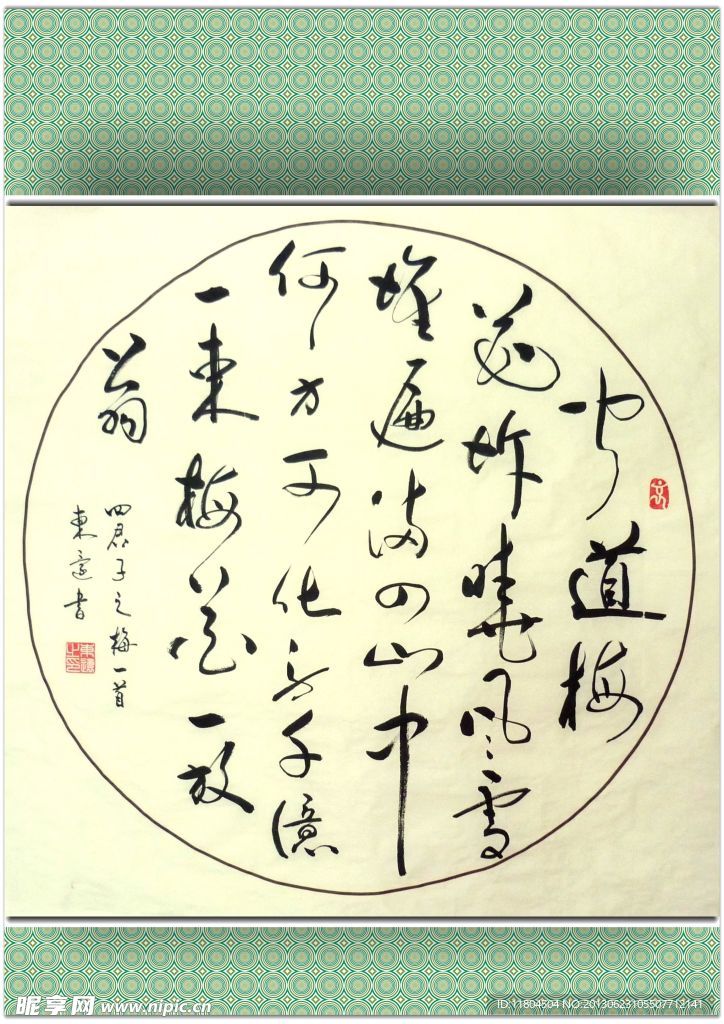 闻道梅
花坼曉風雪
堆遍满四山中
何方可化身千億
一束梅花一放
翁
四君子之梅一首
東書
昵享网 www.nipic.cn
ID:11804504 NO:20130623105507712141